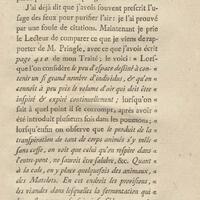 J'ai déjà dit que j'avois souvent prescrit l'u-
sage des feux pour purifier l'air: je l'ai prouvé
par une foule de citations. Maintenant je prie
le Lecteur de comparer ce que je viens de rap-
porter de M. Pringle, avec ce que j'avois écrit
page 410 de mon Traité; le voici: « Lors-
que l'on considère le peu d'espace destiné à con-
tenir un si grand nombre d'individus, & qu'on
connoît à peu près le volume d'air qui doit être
inspiré & expiré continuellement; lorsqu'on
fait à quel point il se corrompt, après avoir
été introduit plusieurs fois dans les poumons;
lorsqu'enfin on observe que le produit de la
transpiration de tant de corps animés s'y mêle
sans cesse, on voit que celui qu'on respire dans
l'entre-pont, ne sauroit être salubre, &c. Quant
à la cale, on y place quelquefois des animaux,
des Matelots. En cet endroit les provisions,
les viandes dans lesquelles la fermentation qui